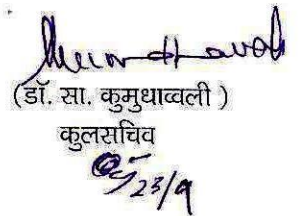 (डॉ. सा. कुमुधाव्वली )
कुलसचिव
23/9